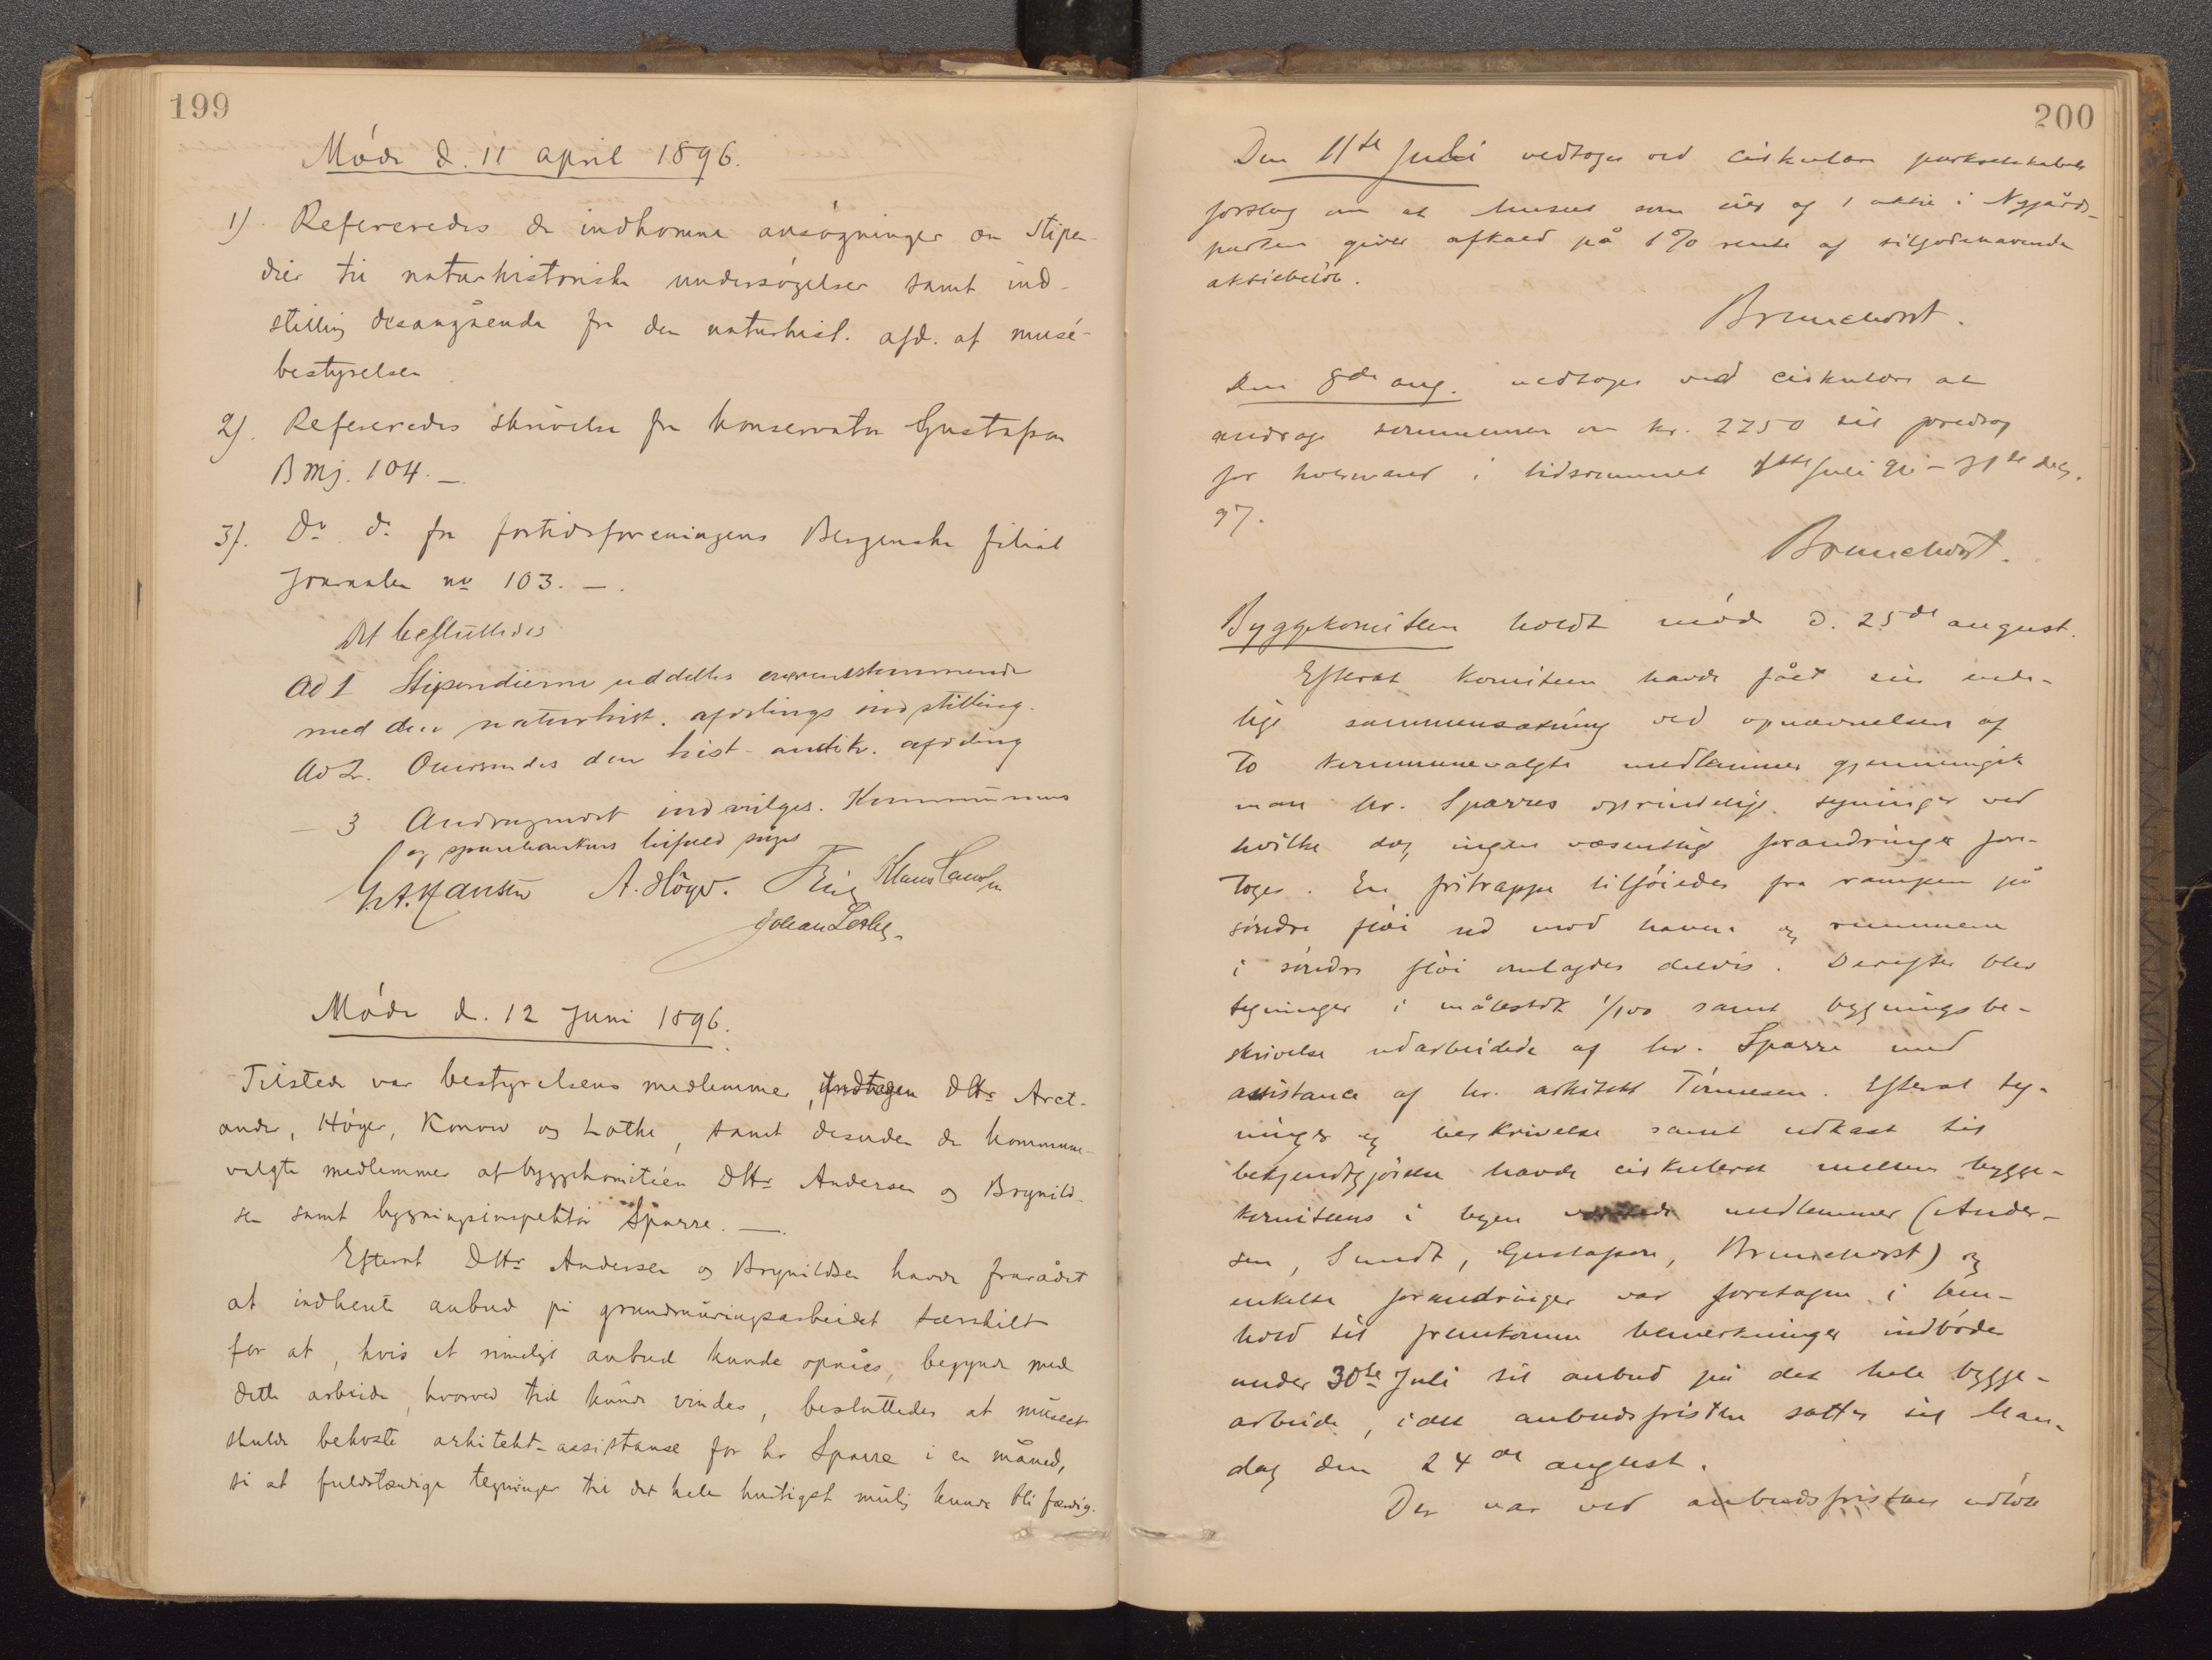 199
Møde d. 11 april 1896.
1) Refereredes de indkomne ansøgninger om stipen-
dier til naturhistoriske undersøgelser samt ind-
stilling desangående fra den naturhist. afd. af musé-
bestyrelsen
2). Refereredes skrivelse fra konservator Gustafson
B mj. 104. —
3). Do do fra fortidsforeningens Bergenske filial
Journalen no 103. —.
Det besluttedes
Ad 1 Stipendierne uddeltes overensstemmende
med den naturhist. afdelings indstilling.
Ad 2. Oversendes den hist-antik. afdeling
— 3 Andragendet indvilges. Kommunens
og sparebankens bifald søges
Hansen A. Høyer. Klaus
Johan
Møde d. 12 Juni 1896.
Tilstede var bestyrelsens medlemmer, undtagen DHr Arct-
ander, Høyer, Konow og Lothe, samt desuden de kommune-
valgte medlemmer af byggekomitéen DHr Andersen og Brynild-
sen samt bygningsinspektør Sparre. —
Efterat DHr Andersen og Brynildsen havde frarådet
at indhente anbud på grundmuringsarbeidet særskilt
for at, hvis et rimeligt anbud kunde opnåes, begynde med
dette arbeide, hvorved tid kunde vindes, besluttedes at museet
skulde bekoste arkitekt-assistanse for hr Sparre i en måned,
så at fuldstændige tegninger til det hele hurtigst mulig kunde bli færdig.
200
Den 11te Juli vedtoges ved cirkulære parkselskabets
forslag om at Museet som eier af 1 aktie i Nygårds-
parken giver afkald på 1% rente af tilgodehavende
aktiebeløb.
Brunchorst.
Den 8de aug. vedtoges ved cirkulære at
andrage kommunen om kr. 2250 til foredrag
for i tidsrummet juli 96 – 31te dec.
97.
Brunchorst.
Byggekomiteen holdt møde d. 25de august.
Efterat komiteen havde fået sin ende-
lige sammensætning ved opnævnelsen af
to kommunevalgte medlemmer gjennemgik
man hr. Sparres oprindelige tegninger ved
hvilke dog ingen væsentlige forandringer fore-
toges. En fritrappe tilføiedes fra rampen på
søndre fløi ned mod haven og rummene
i søndre fløi omlagdes delvis. Derefter blev
tegninger i målestok 1/100 samt bygningsbe-
skrivelse udarbeidede af hr. Sparre med
assistance af hr. arkitekt Tønnesen. Efterat teg-
ninger og beskrivelse samt udkast til
bekjendtgjørelse havde cirkuleret mellem bygge-
komiteens i byen medlemmer (Ander-
sen, Sundt, Gustafson, Brunchorst) og
enkelte forandringer var foretagne i hen-
hold til fremkomne bemerkninger indbødes
under 30te Juli til anbud på det hele bygge-
arbeide, idet anbudsfristen sattes til Man-
dag den 24de august.
Der var ved anbudsfristens udløb